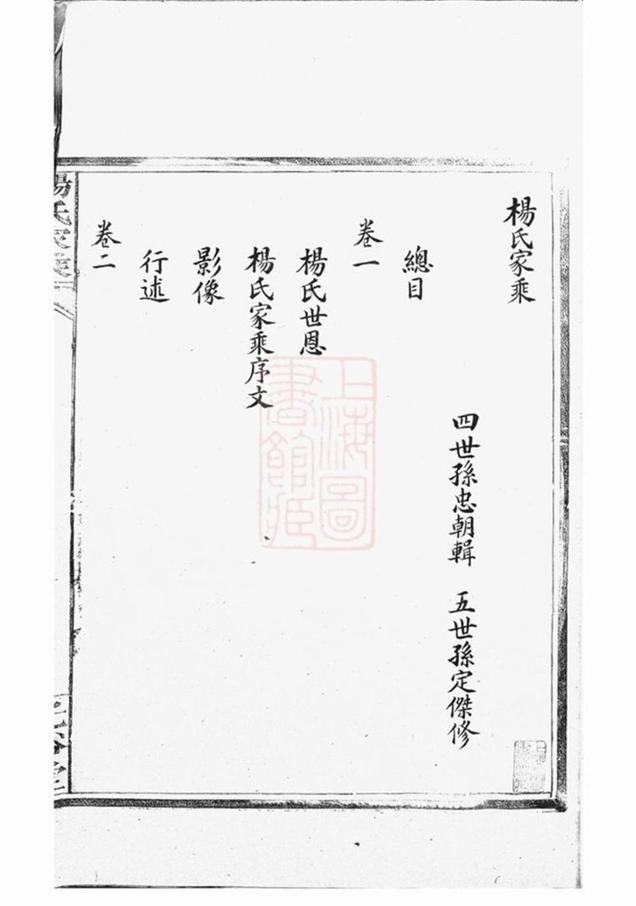 楊氏家乘
四世孫忠朝輯　五世孫定傑修
總目
卷一
楊氏世恩
楊氏家乘序文
影像
行述
卷二
楊氏家乘
上海圖書館藏